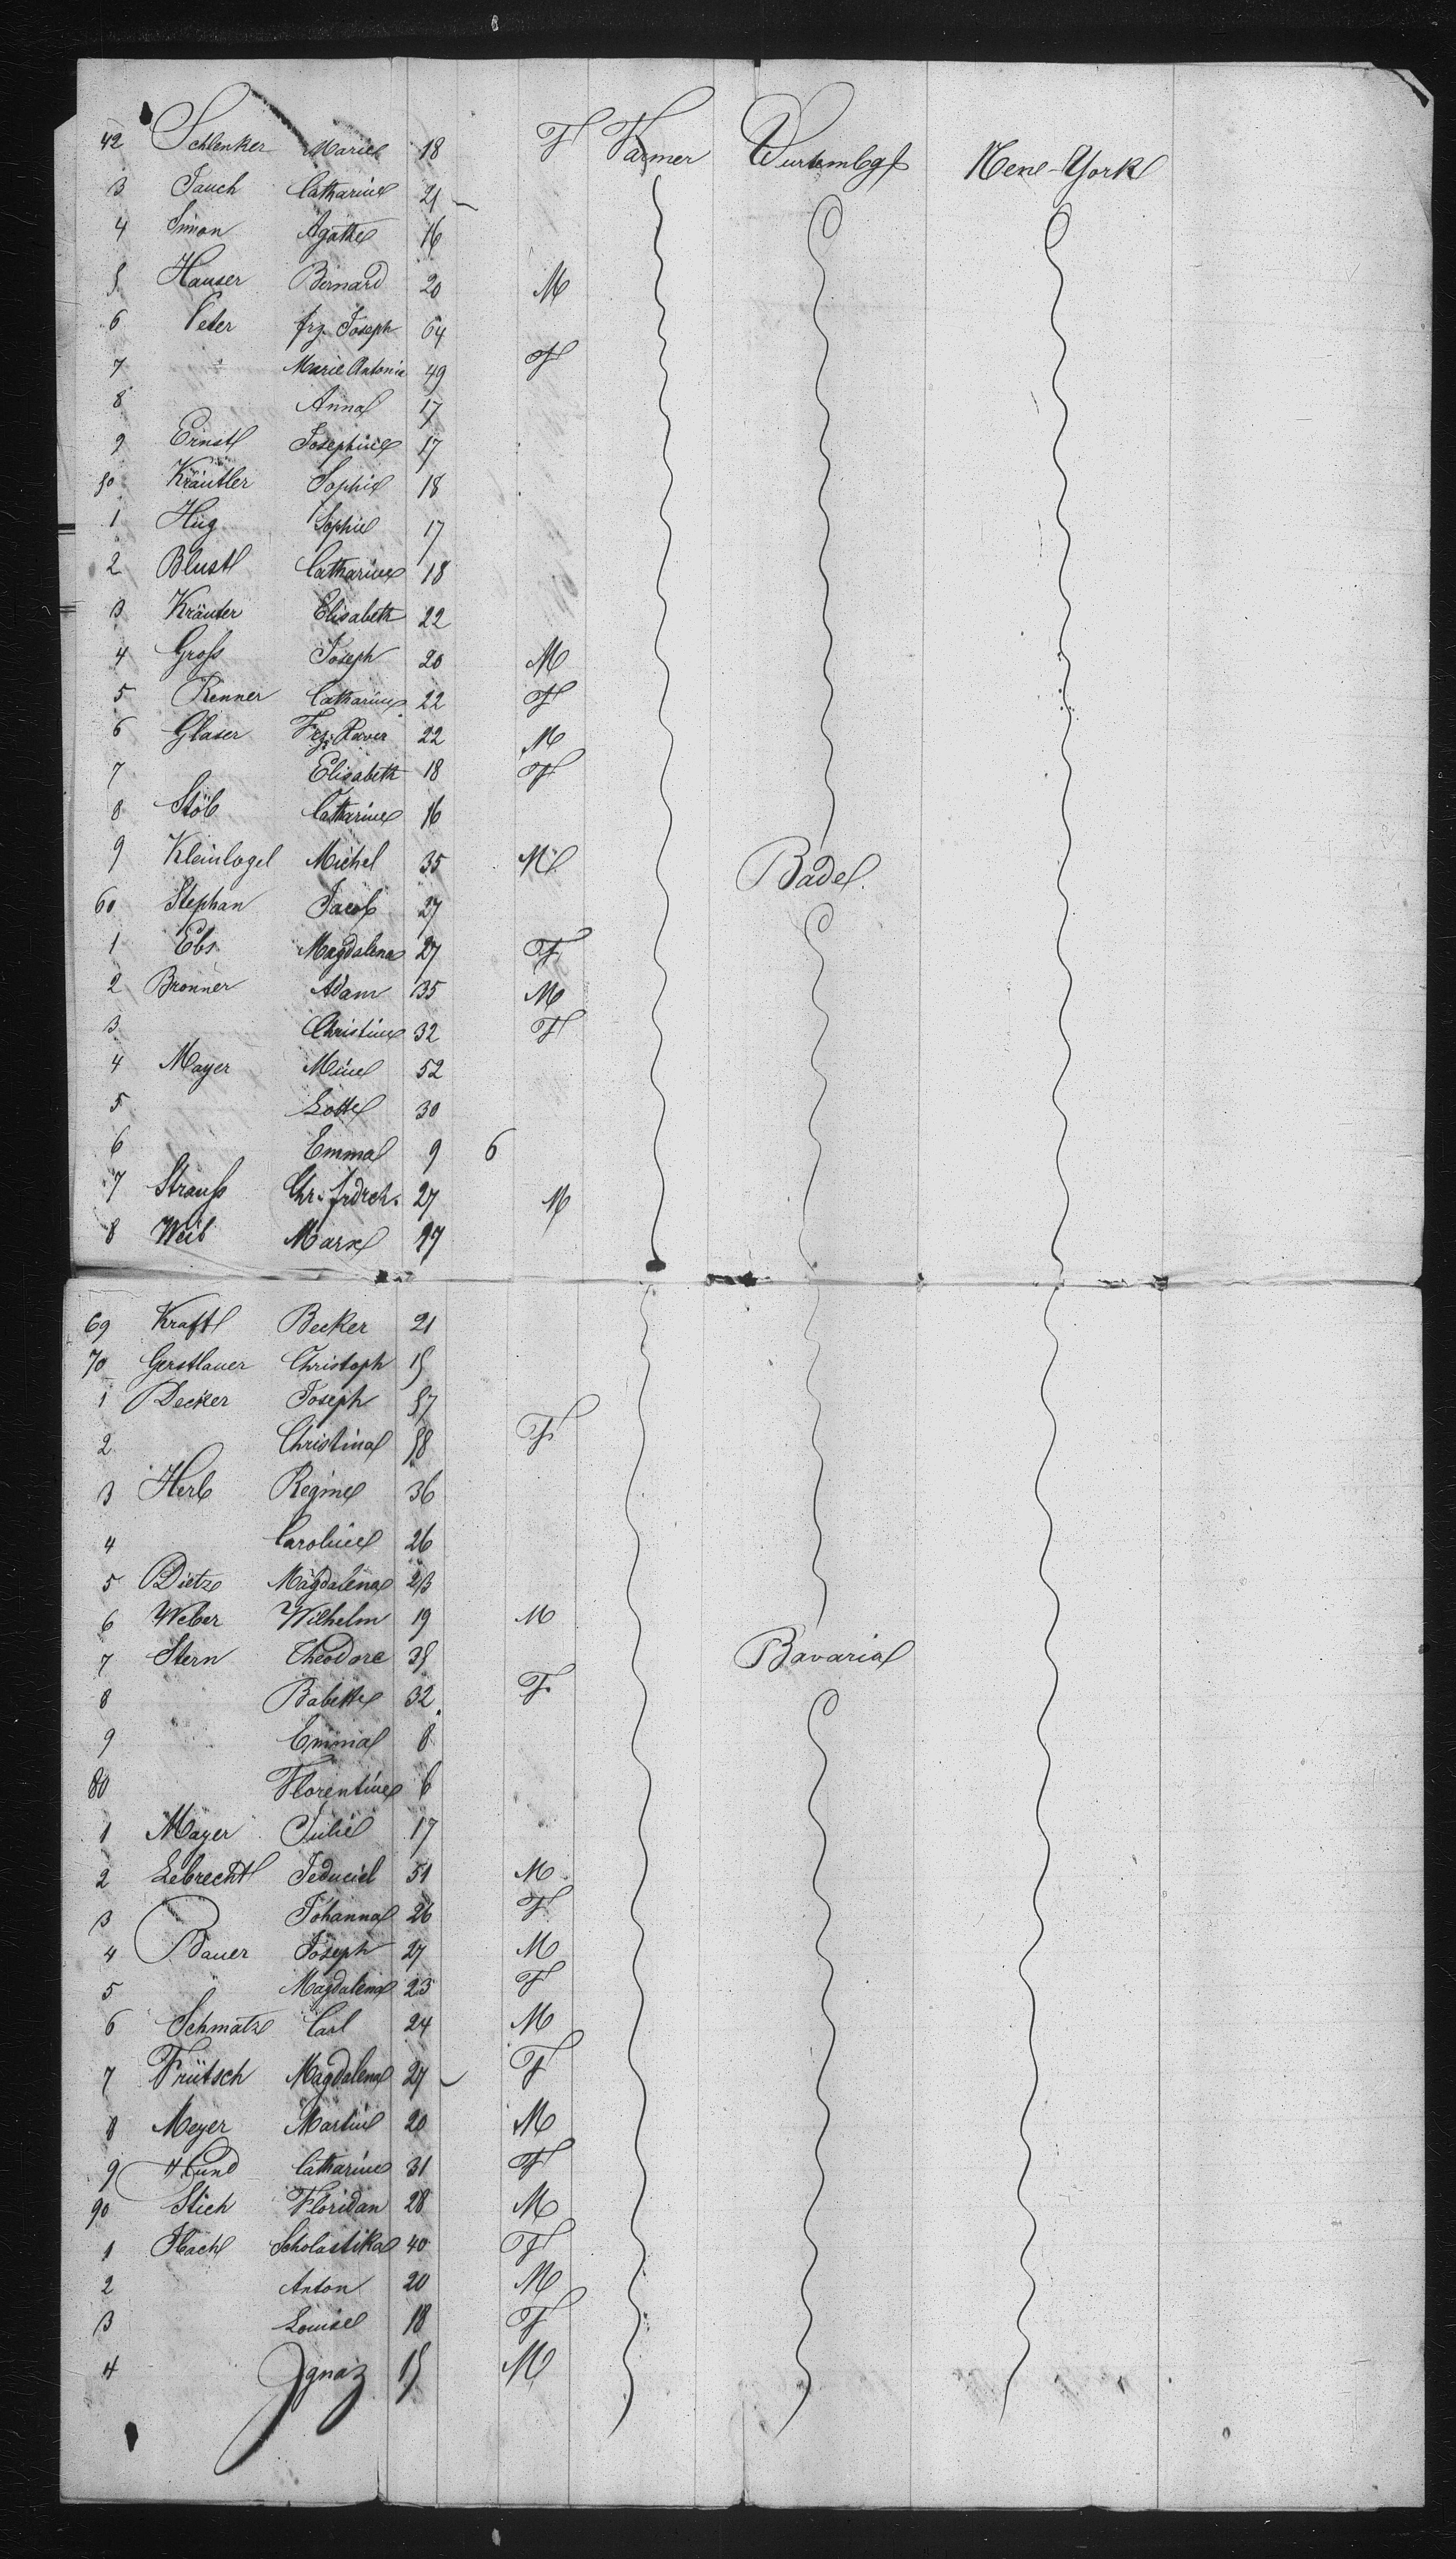 42 Schlenker Marie 18 F Farmer Wurtembg New-York
3 Jauch Catharine 21
4 Simon Agathe 16
5 Hauser Bernard 20 M
6 Peter frz. Joseph 64
7 " Marie Antonie 49 F
8 Anna 17
9 Ernst Josephine 17
50 Kräutler Sophie 18
1 Hug Sophie 17
2 Blust Catharine 18
3 Kräuter Elisabeth 22
4 Groß Joseph 20 M
5 Renner Catharine 22 F
6 Glaser Frz. Xaver 22 M
7 Elisabeth 18 F
8 Stöb Catharine 16
9 Kleinlogel Michel 35 M Bade.
60 Stephan Jacob 27
1 Ebs Magdalena 27 F
2 Bronner Adam 35 M
3 Christine 32 F
4 Mayer Mine 52
5 Lotte 30
6 Emma 9 6
7 Strauß Chr. frdrch. 27 M
8 Weil Marx 27
69 Kraft Becker 21
70 Gerstlauer Christoph 15
1 Decker Joseph 57
2 Christina 58 F
3 Herb Regine 36
4 Caroline 26
5 Dietze Magdalena 23
6 Weber Wilhelm 19 M
7 Stern Theodore 35 Bavaria
8 Babette 32 F
9 Emma 8
80 Florentine 6
1 Mayer Julie 17
2 Lebrecht 51 M
3 Johanna 26 F
4 Bauer Joseph 27 M
5 Magdalena 23 F
6 Schmatz Carl 24 M
7 Frütsch Magdalena 27 F
8 Meyer Martin 20 M
9 Hund Catharine 31 F
90 Stich Floridan 28 M
1 Scholastika 40 F
2 Anton 20 M
3 Louise 18 F
4 Ignaz 15 M